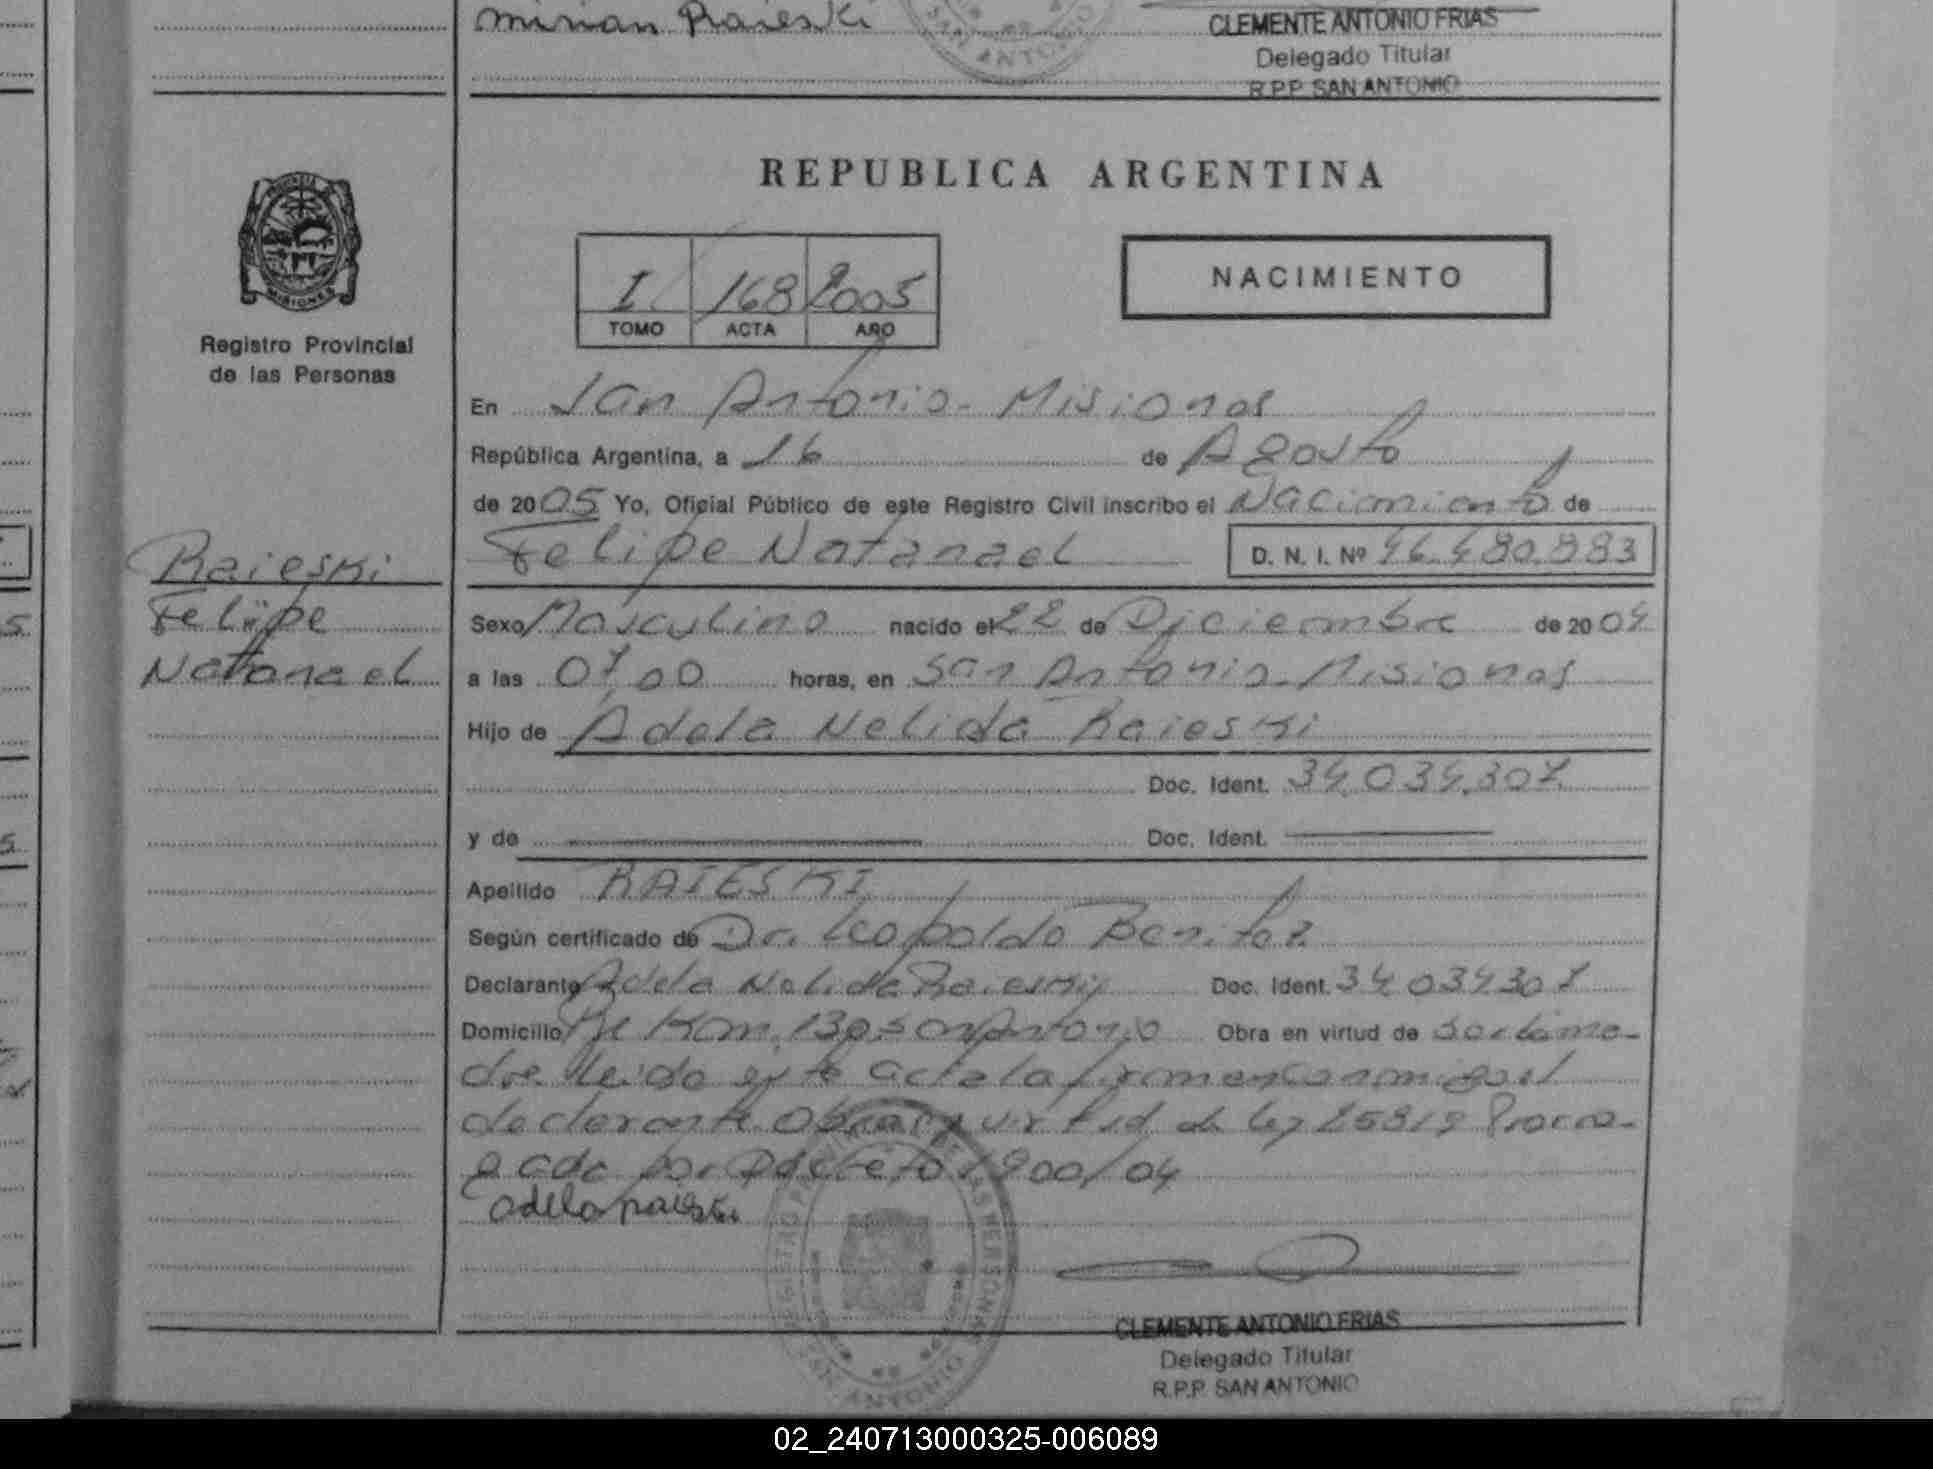 mirian Raieski
CLEMENTE ANTONIO FRIAS
Delegado Titular
R.P.P. SAN ANTONIO
SAN ANTONIO
REPUBLICA ARGENTINA
PROVINCIA DE
MISIONES
Registro Provincial
de las Personas
I 168 2005
TOMO ACTA AÑO
NACIMIENTO
En San Antonio - Misiones
República Argentina, a 16 de Agosto
de 2005 Yo, Oficial Público de este Registro Civil inscribo el Nacimiento de
Felipe Natanael D. N. I. Nº 46.480.883
Raieski
Felipe
Natanael
Sexo Masculino nacido el 22 de Diciembre de 2004
a las 07,00 horas, en San Antonio - Misiones
Hijo de Adela Nelida Raieski
Doc. Ident. 34.034.307
y de Doc. Ident.
Apellido RAIESKI
Según certificado de Dr. Leopoldo Benitez
Declarante Adela Nelida Raieski Doc. Ident. 34034307
Domicilio Km. 130 San Antonio Obra en virtud de ser la ma-
dre leido este acta la firman conmigo el
declarante Obra en virtud de ley 25819 Prorro-
gada por Decreto 1900/04
adela raieski
SAN ANTONIO
CLEMENTE ANTONIO FRIAS
Delegado Titular
R.P.P. SAN ANTONIO
02_240713000325-006089